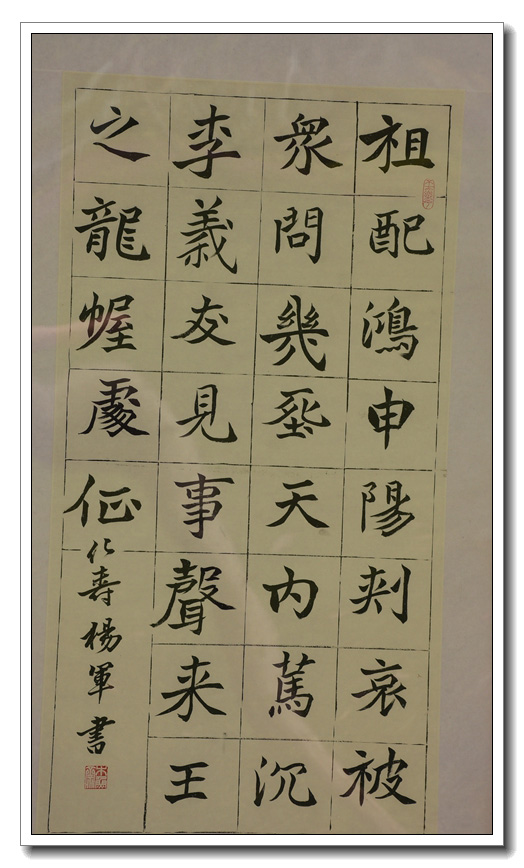 祖配鴻申陽刾哀被
衆問幾天内沉
李義友見事聲来王
之龍幄處佂
仁寿楊軍書